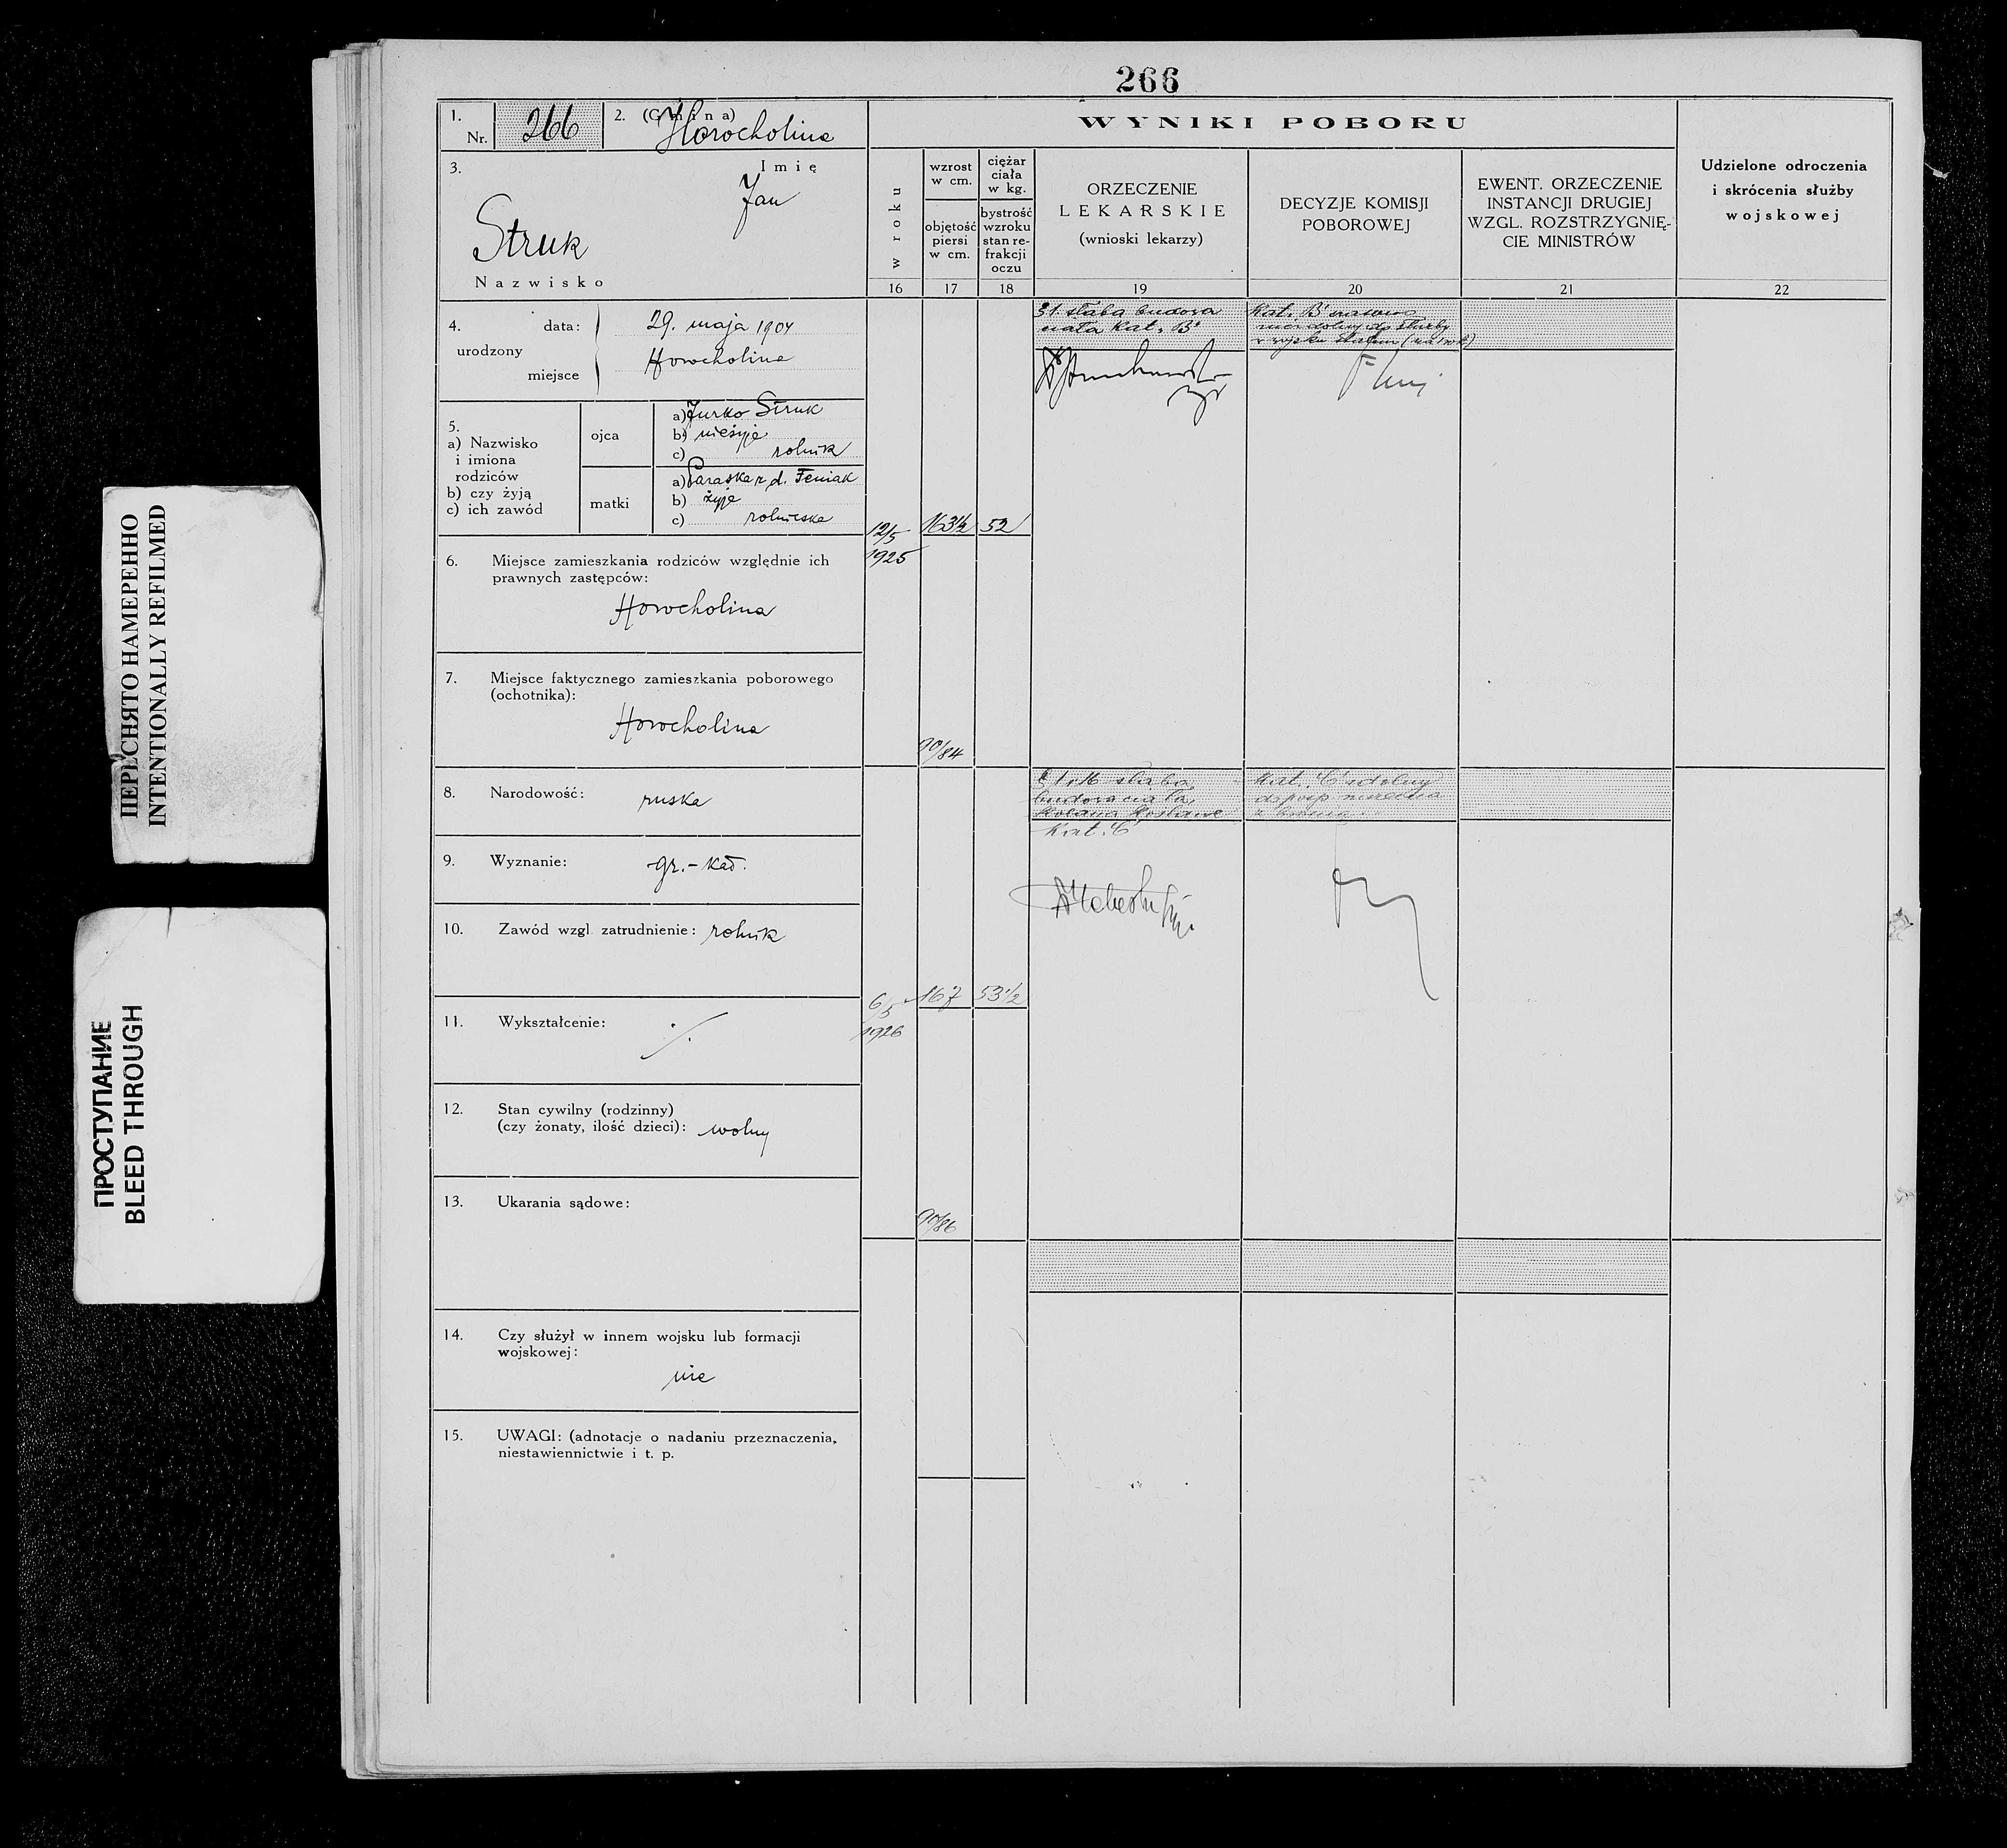 266
1.
Nr. 266
2. (Gmina)
Horocholina
3.
Imię
Jan
Struk
Nazwisko
4.
urodzony
data: 29. maja 1904
miejsce Horocholina
5.
a) Nazwisko
i imiona
rodziców
b) czy żyją
c) ich zawód
ojca
a) Jurko Struk
b) nieżyje
c) rolnik
matki
a) Paraska z d. Feniak
b) żyje
c) rolniczka
6. Miejsce zamieszkania rodziców względnie ich
prawnych zastępców:
Horocholina
7. Miejsce faktycznego zamieszkania poborowego
(ochotnika):
Horocholina
8. Narodowość: ruska
9. Wyznanie: gr.-kat.
10. Zawód wzgl. zatrudnienie: rolnik
11. Wykształcenie: ./.
12. Stan cywilny (rodzinny)
(czy żonaty, ilość dzieci): wolny
13. Ukarania sądowe:
14. Czy służył w innem wojsku lub formacji
wojskowej:
nie
15. UWAGI: (adnotacje o nadaniu przeznaczenia,
niestawiennictwie i t. p.
WYNIKI POBORU
w roku
16
wzrost
w cm.
objętość
piersi
w cm.
17
ciężar
ciała
w kg.
bystrość
wzroku
stan re-
frakcji
oczu
18
ORZECZENIE
LEKARSKIE
(wnioski lekarzy)
19
DECYZJE KOMISJI
POBOROWEJ
20
EWENT. ORZECZENIE
INSTANCJI DRUGIEJ
WZGL. ROZSTRZYGNIĘ-
CIE MINISTRÓW
21
Udzielone odroczenia
i skrócenia służby
wojskowej
22
12/5
1925
163½
52
90/84
słaba budowa
ciała Kat. B
Kat. B czasowo
niezdolny do służby
w wojsku stałem
6/5
1926
167
53½
90/86
słaba
budowa ciała,
kolana koślawe
Kat. C
Kat. C zdolny
ПЕРЕСНЯТО НАМЕРЕННО
INTENTIONALLY REFILMED
ПРОСТУПАНИЕ
BLEED THROUGH